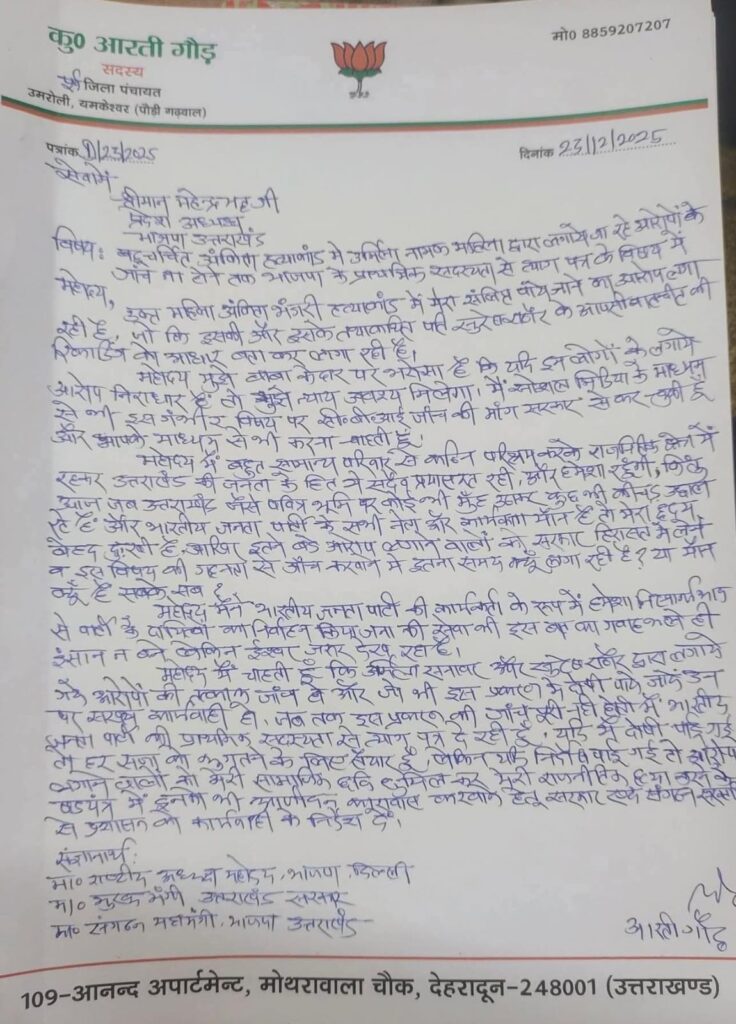 कु0 आरती गौड़
मो0 8859207207
सदस्य
पूर्व जिला पंचायत
उमरोली, यमकेश्वर (पौड़ी गढ़वाल)
पत्रांक 01/23/2025
दिनांक 23/12/2025
सेवा में
श्रीमान महेन्द्र भट्ट जी
प्रदेश अध्यक्ष
भाजपा उत्तराखंड
विषय: बहुचर्चित अंकिता हत्याकांड में उर्मिला नामक महिला द्वारा लगाये जा रहे आरोपों के
जांच ना होने तक भाजपा के प्राथमिक सदस्यता से त्याग पत्र के विषय में
महोदय, उक्त महिला अंकिता भंडारी हत्याकांड में मेरा संलिप्त पाये जाने का आरोप लगा
रही है, जो कि इसकी और इसके तथाकथित पति सुरेश राठौर के आपसी वार्तालाप की
रिकार्डिंग को आधार बता कर लगा रही है।
महोदय मुझे बाबा केदार पर भरोसा है कि यदि इन लोगों के लगाये
आरोप निराधार हैं तो मुझे न्याय अवश्य मिलेगा। मैं सोशल मिडिया के माध्यम
से भी इस गंभीर विषय पर सी०बी०आई जाँच की माँग सरकार से कर चुकी हूँ
और आपके माध्यम से भी करना चाहती हूँ।
महोदय मैं बहुत सामान्य परिवार से कठिन परिश्रम करके राजनितिक क्षेत्र में
रहकर उत्तराखंड की जनता के हित में सदैव प्रयासरत रही, और हमेशा रहूँगी, किंतु
आज जब उत्तराखंड जैसे पवित्र भूमि पर कोई भी मुँह उठाकर कुछ भी कीचड़ उछाल
रहे हैं और भारतीय जनता पार्टी के सभी नेता और कार्यकर्ता मौन हैं तो मेरा हृदय
बेहद दुःखी है, आखिर इतने बड़े आरोप लगाने वालों को सरकार हिरासत में लेने
व इस विषय की गहनता से जाँच करवाने में इतना समय क्यूँ लगा रही है? या मौन
क्यूँ है सबके सब?
महोदय मैंने भारतीय जनता पार्टी की कार्यकर्ता के रूप में हमेशा निस्वार्थ भाव
से पार्टी के दायित्वों का निर्वहन किया जनता की सेवा की इस बात का गवाह भले ही
इंसान न बने लेकिन ईश्वर जरूर देख रहा है।
महोदय मैं चाहती हूँ कि उर्मिला सनावर और सुरेश राठौर द्वारा लगाये
गये आरोपों की तत्काल जांच हो और जो भी इस प्रकरण में दोषी पाये जाये उन
पर सख्त कार्यवाही हो, जब तक इस प्रकरण की जाँच पूरी नहीं होती मैं भारतीय
जनता पार्टी की प्राथमिक सदस्यता से त्याग पत्र दे रही हूँ, यदि मैं दोषी पाई गई
तो हर सजा को भुगतने के लिए तैयार हूँ, लेकिन यदि निर्दोष पाई गई तो आरोप
लगाने वालों को मेरी सामाजिक छवि धूमिल कर मेरी राजनीतिक हत्या करने के
षडयंत्र में इनको भी आजीवन कारावास करवाने हेतु सरकार एवं संगठन सख्ती
से प्रशासन को कार्यवाही के निर्देश दें।
संज्ञानार्थ:
मा० राष्ट्रीय अध्यक्ष महोदय, भाजपा, दिल्ली
मा० मुख्य मंत्री उत्तराखंड सरकार
मा० संगठन महामंत्री, भाजपा उत्तराखंड
आरती गौड़
109-आनन्द अपार्टमेन्ट, मोथरावाला चौक, देहरादून-248001 (उत्तराखण्ड)